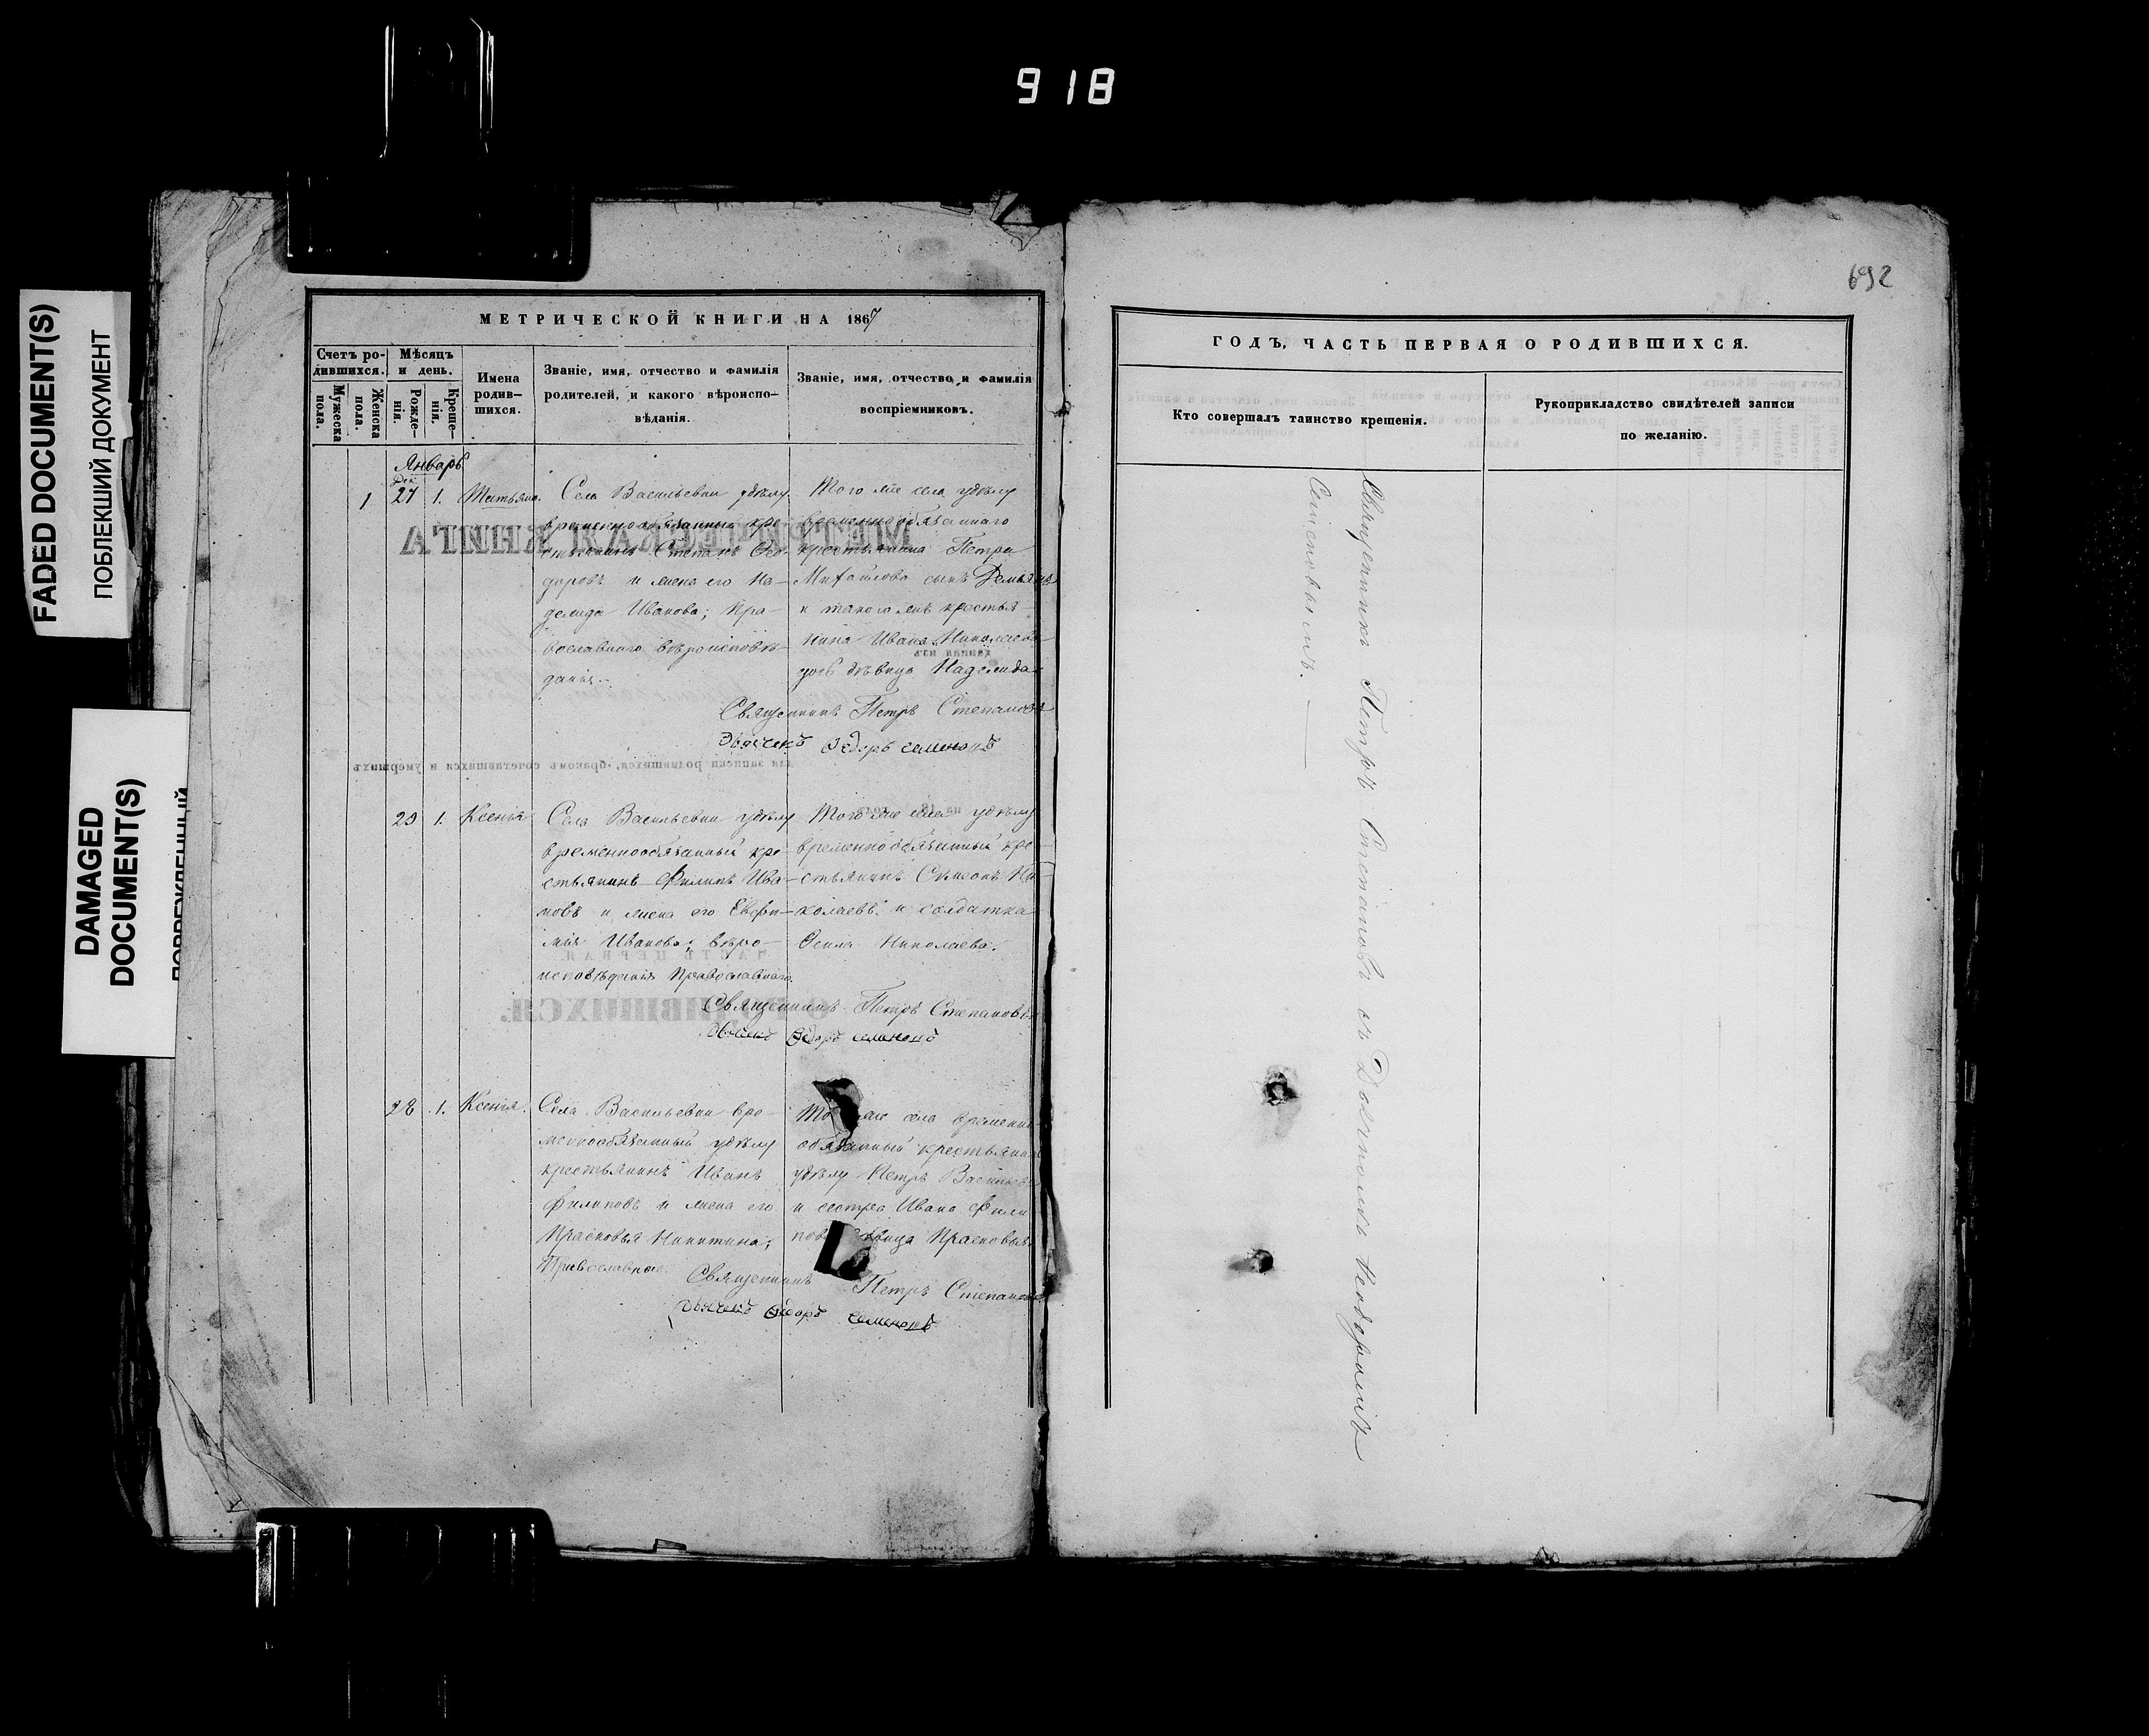 918
FADED DOCUMENT(S)
ПОБЛЕКШИЙ ДОКУМЕНТ
DAMAGED
DOCUMENT(S)
692
МЕТРИЧЕСКОЙ КНИГИ НА 1867
Счетъ ро-
дившихся.
Мужеска
пола.
Женска
пола.
Мѣсяцъ
и день.
Рожде-
нія.
Креще-
нія.
Имена
родив-
шихся.
Званіе, имя, отчество и фамилія
родителей, и какого вѣроиспо-
вѣданія.
Званіе, имя, отчество и фамилія
воспріемниковъ.
Январь
Дек.
1 27 1. Татьяна.
Села Васильевки удѣлу
временнообязанный кре-
стьянинъ Степанъ Ѳео-
доровъ и жена его На-
дежда Иванова; Пра-
вославнаго вѣроисповѣ-
данія.
Того же села удѣлу
временнообязаннаго
крестьянина Петра
Михайлова сынъ
и такого же крестья-
нина Ивана Николаева
дочь дѣвица Надежда
Священникъ Петръ Степановъ
Дьячекъ Ѳедоръ Семеновъ
29 1. Ксенія
Села Васильевки удѣлу
временнообязанный кре-
стьянинъ Филипъ Ива-
новъ и жена его Евфи-
мія Иванова; вѣро-
исповѣданія Православнаго.
Того же села удѣлу
временнообязанный кре-
стьянинъ Симеонъ Ни-
колаевъ и солдатка
Николаева.
Священникъ Петръ Степановъ
Дьячекъ Ѳедоръ Семеновъ
28 1. Ксенія.
Села Васильевки вре-
меннообязанный удѣлу
крестьянинъ Иванъ
Филиповъ и жена его
Прасковья Никитина;
Православные.
То же села временно-
обязанный крестьянинъ
удѣлу Петръ Васильевъ
и сестра Ивана Фили-
пова Прасковья
Священникъ Петръ Степановъ
Дьячекъ Ѳедоръ Семеновъ
МЕТРИЧЕСКАЯ КНИГА
для записки родившихся, бракомъ сочетавшихся и умершихъ
ЧАСТЬ ПЕРВАЯ
О РОДИВШИХСЯ.
ГОДЪ, ЧАСТЬ ПЕРВАЯ О РОДИВШИХСЯ.
Кто совершалъ таинство крещенія.
Рукоприкладство свидѣтелей записи
по желанію.
Священникъ Петръ Степановъ съ Дьячкомъ Ѳеодоромъ
Семеновымъ.